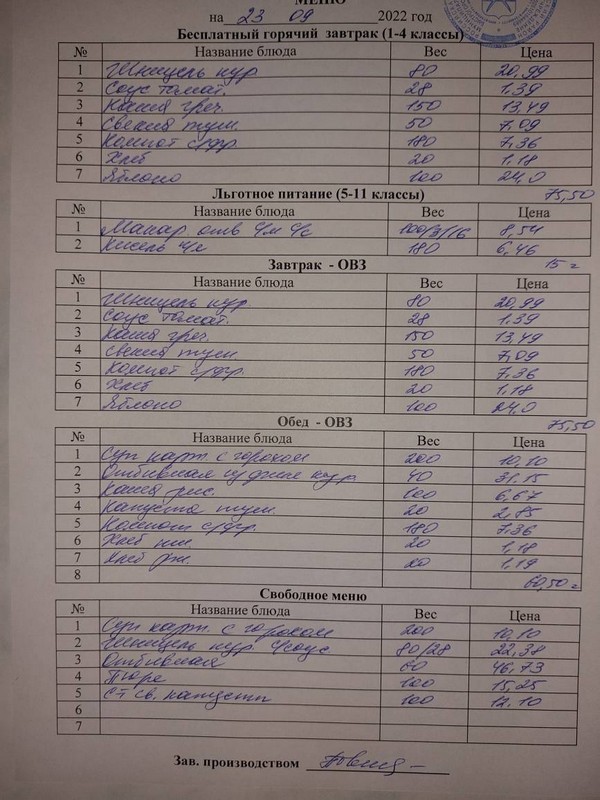 МЕНЮ
на 23 09 2022 год
Бесплатный горячий завтрак (1-4 классы)
№ Название блюда Вес Цена
1 Шницель кур 80 20,99
2 Соус томат. 28 1,39
3 Каша греч. 150 13,49
4 Свекла туш. 50 7,09
5 Компот с/фр. 180 7,36
6 Хлеб 20 1,18
7 Яблоко 100 24,0
75,50
Льготное питание (5-11 классы)
№ Название блюда Вес Цена
1 Макар. отв 100/3/16 8,54
2 Кисель 180 6,46
15
Завтрак - ОВЗ
№ Название блюда Вес Цена
1 Шницель кур 80 20,99
2 Соус томат. 28 1,39
3 Каша греч. 150 13,49
4 Свекла туш. 50 7,09
5 Компот с/фр. 180 7,36
6 Хлеб 20 1,18
7 Яблоко 100 24,0
75,50
Обед - ОВЗ
№ Название блюда Вес Цена
1 Суп карт. с горохом 200 10,10
2 Отбивная из филе кур 40 31,15
3 Каша рис. 100 6,67
4 Капуста туш. 20 2,85
5 Компот с/фр. 180 7,36
6 Хлеб пш. 20 1,18
7 Хлеб рж. 20 1,19
8 60,50
Свободное меню
№ Название блюда Вес Цена
1 Суп карт. с горохом 200 10,10
2 Шницель кур соус 80/28 22,38
3 Отбивная 60 46,73
4 Пюре 100 15,25
5 С-т св. капусты 100 12,10
6
7
Зав. производством